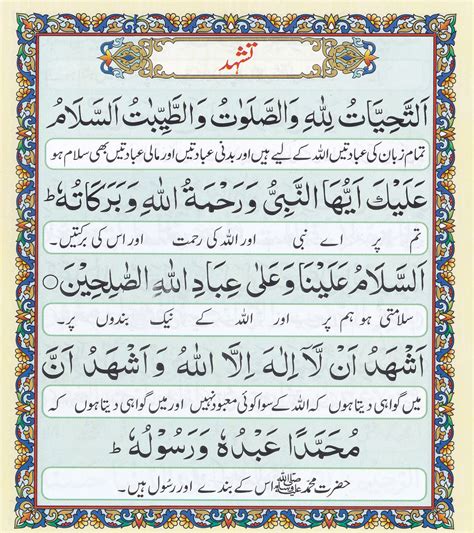 تشہد
اَلتَّحِيَّاتُ لِلّٰهِ وَالصَّلَوٰتُ وَالطَّيِّبٰتُ اَلسَّلَامُ
تمام زبان کی عبادتیں اللہ کے لیے ہیں اور بدنی عبادتیں اور مالی عبادتیں بھی سلام ہو
عَلَيْكَ اَيُّهَا النَّبِىُّ وَرَحْمَةُ اللهِ وَبَرَكَاتُهٗ ؕ
تم پر اے نبی اور اللہ کی رحمت اور اس کی برکتیں۔
اَلسَّلَامُ عَلَيْنَا وَعَلٰى عِبَادِ اللهِ الصّٰلِحِيْنَ ○
سلامتی ہو ہم پر اور اللہ کے نیک بندوں پر۔
اَشْهَدُ اَنْ لَّاۤ اِلٰهَ اِلَّا اللهُ وَ اَشْهَدُ اَنَّ
میں گواہی دیتا ہوں کہ اللہ کے سوا کوئی معبود نہیں اور میں گواہی دیتا ہوں کہ
مُحَمَّدًا عَبْدُهٗ وَرَسُوْلُهٗ ؕ
حضرت محمد ﷺ اس کے بندے اور رسول ہیں۔